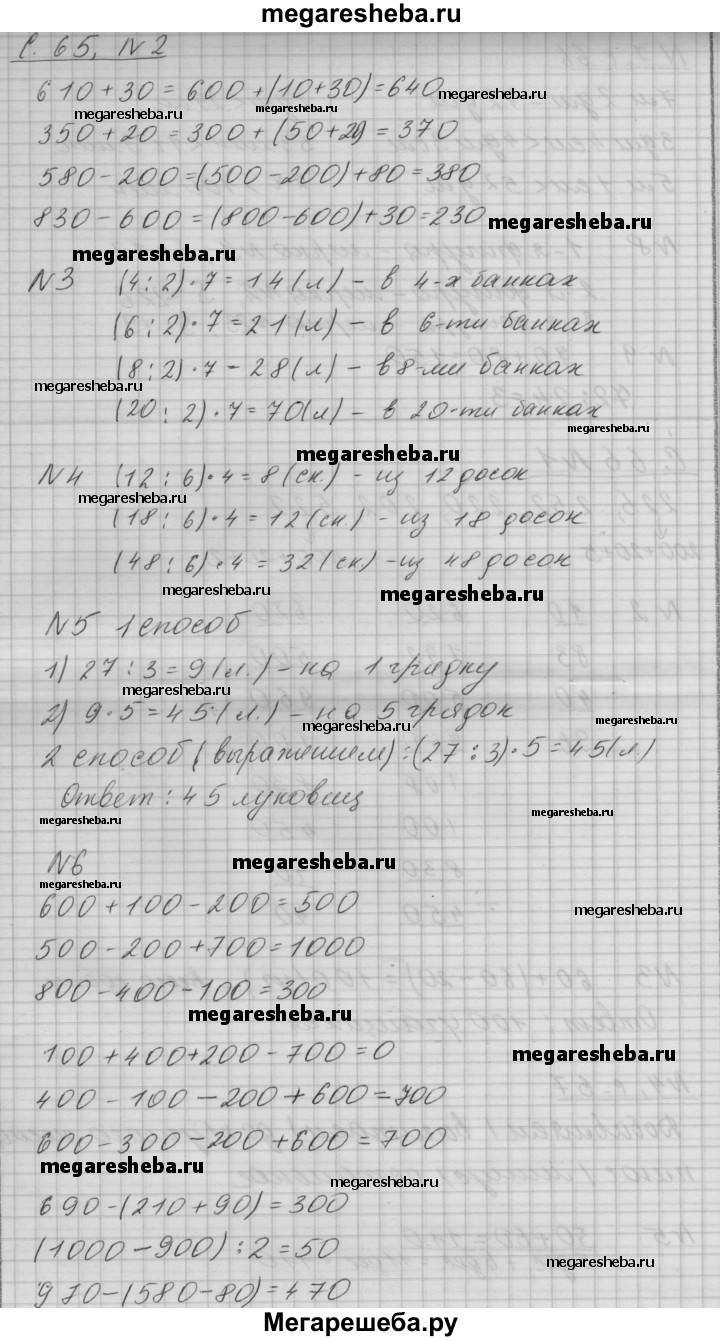 megaresheba.ru
С. 65, №2
610+30=600+(10+30)=640
megaresheba.ru megaresheba.ru
350+20=300+(50+20)=370
580-200=(500-200)+80=380
830-600=(800-600)+30=230
megaresheba.ru
megaresheba.ru
№3 (4:2)·7=14(л) - в 4-х банках
(6:2)·7=21(л) - в 6-ти банках
(8:2)·7-28(л) - в 8-ми банках
megaresheba.ru
(20:2)·7=70(л) - в 20-ти банках
megaresheba.ru
megaresheba.ru
№4 (12:6)·4=8(ск.) - из 12 досок
megaresheba.ru
(18:6)·4=12(ск.) - из 18 досок
(48:6)·4=32(ск.) - из 48 досок
megaresheba.ru megaresheba.ru
№5 1 способ
1) 27:3=9(л.) - на 1 грядку
megaresheba.ru
2) 9·5=45(л.) - на 5 грядок
megaresheba.ru
megaresheba.ru
2 способ (выражением):(27:3)·5=45(л)
Ответ: 45 луковиц
megaresheba.ru megaresheba.ru
№6 megaresheba.ru
megaresheba.ru
600+100-200=500
megaresheba.ru
500-200+700=1000
800-400-100=300
megaresheba.ru
100+400+200-700=0
megaresheba.ru
400-100-200+600=700
600-300-200+600=700
megaresheba.ru megaresheba.ru
690-(210+90)=300
(1000-900):2=50
megaresheba.ru
970-(580-80)=470
Мегарешеба.ру